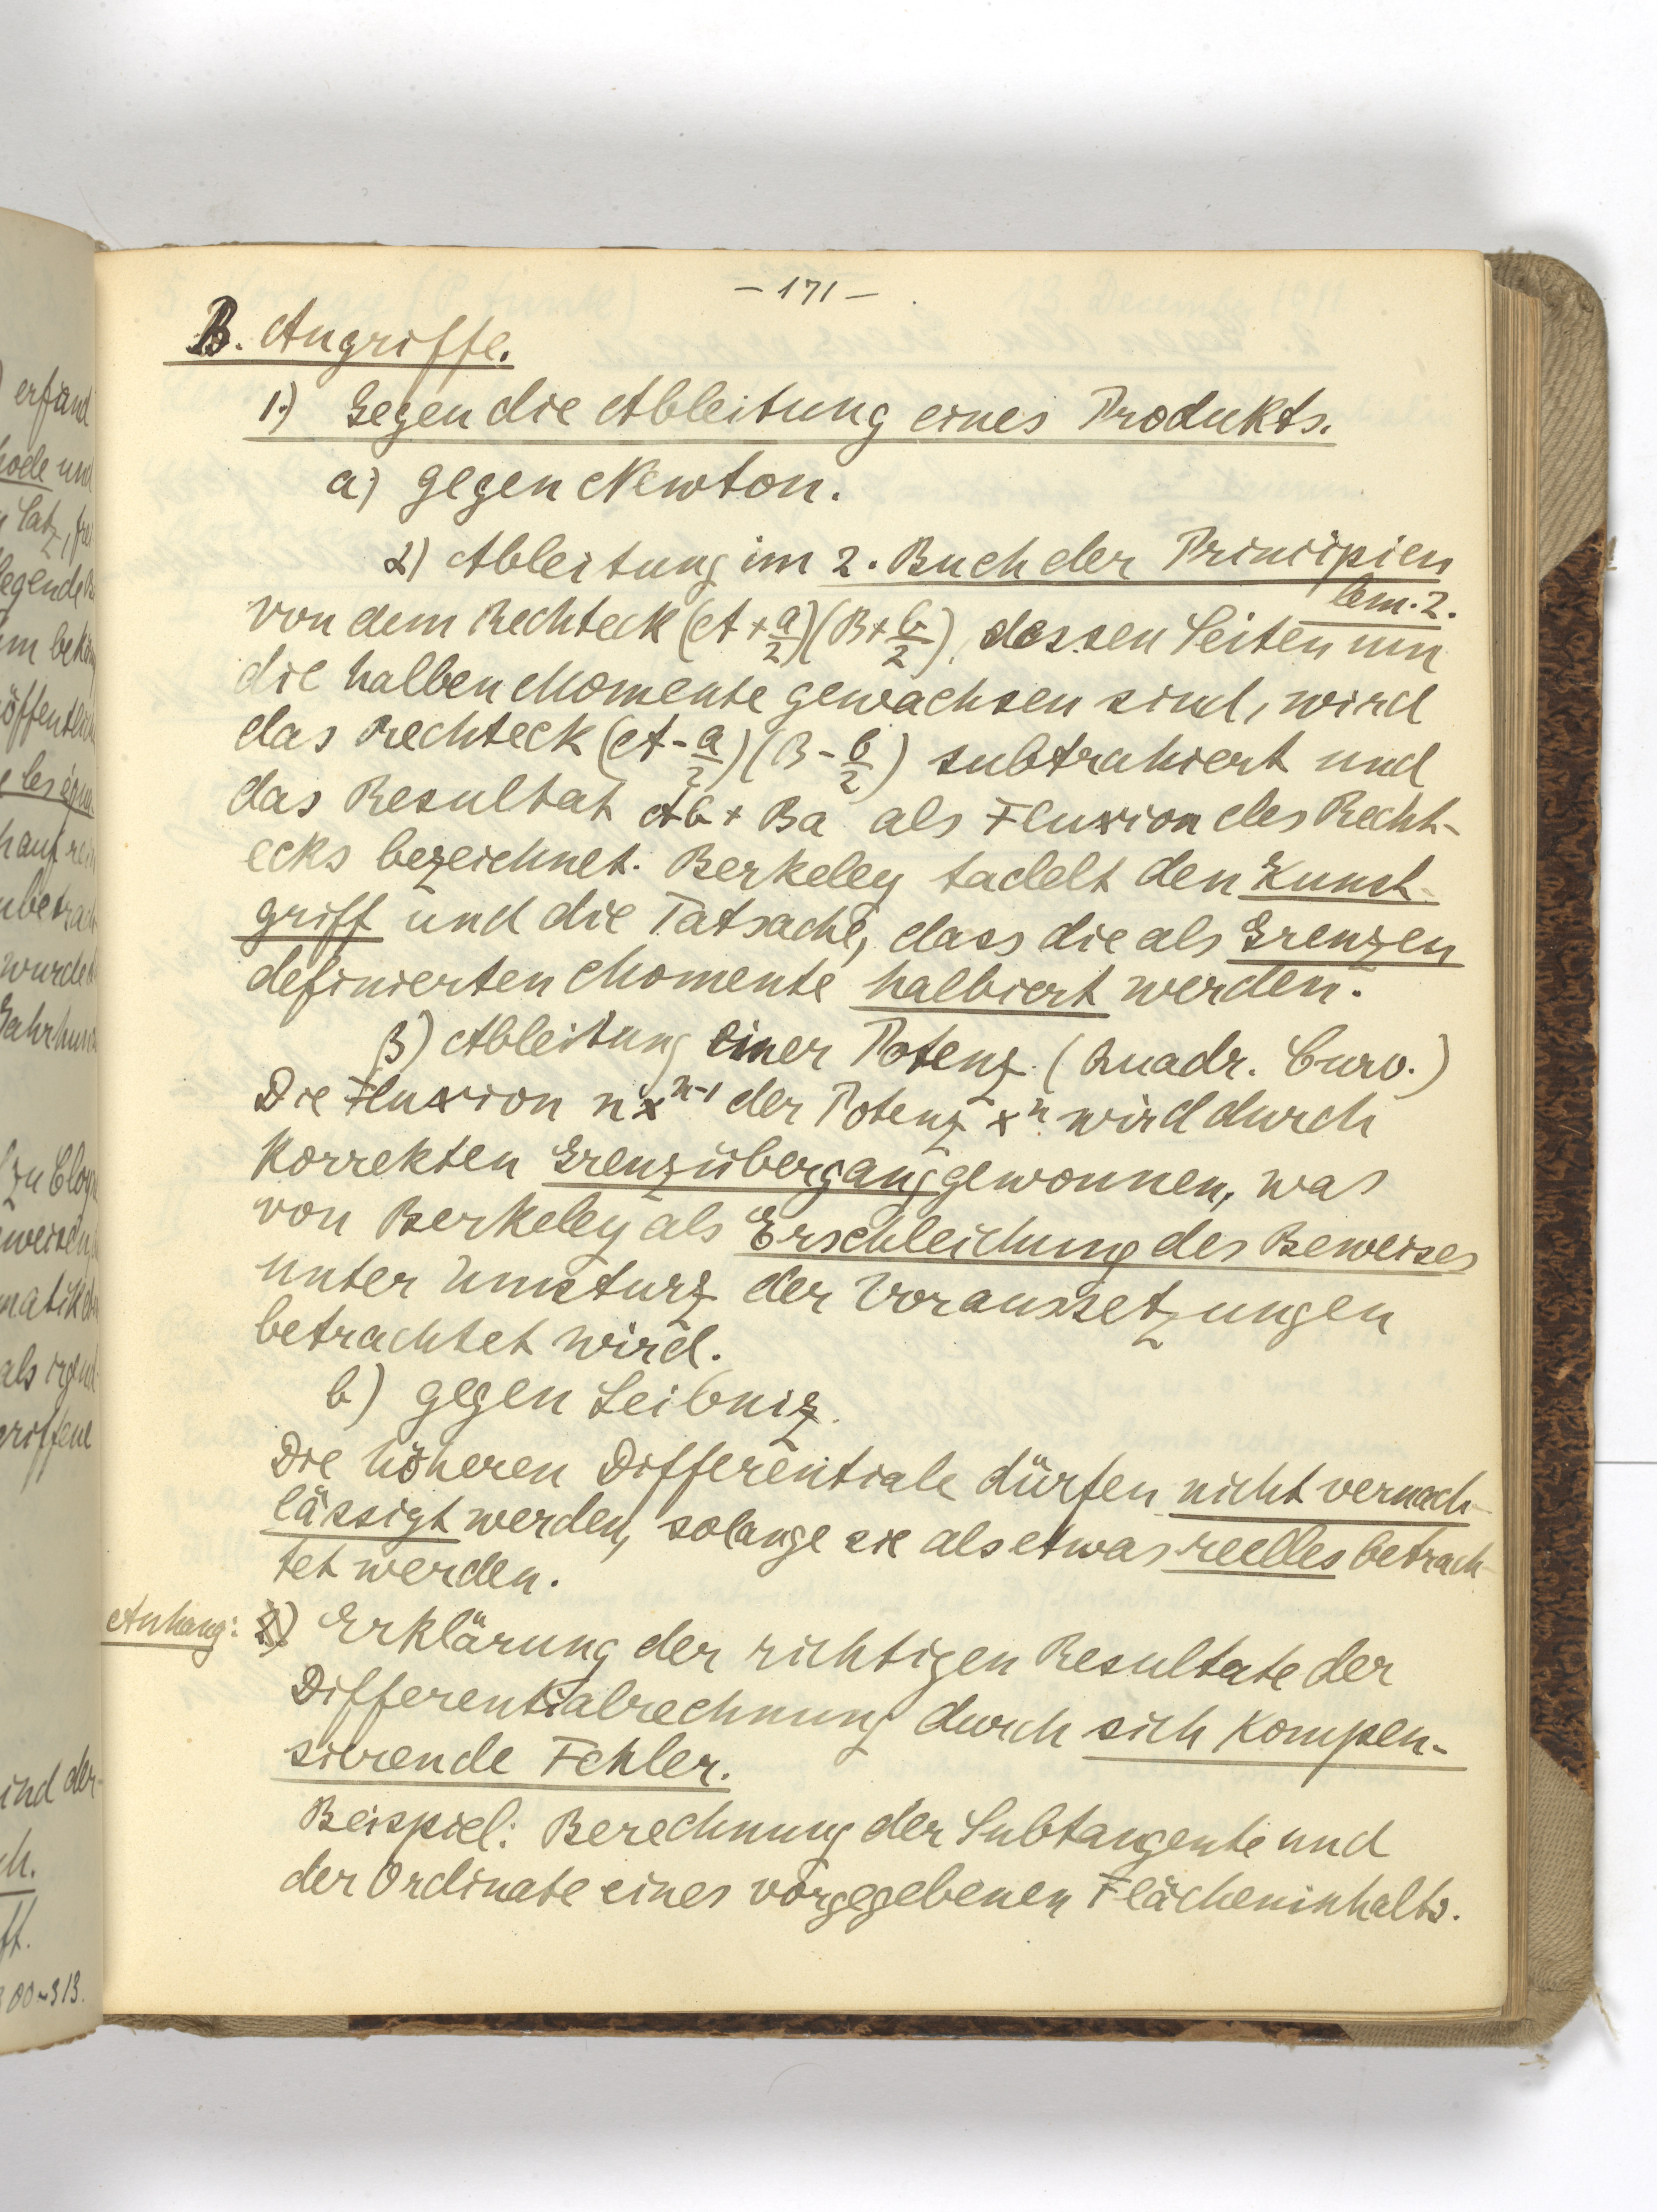 erfand
- 171 -
B. Angriffe.
1.) Gegen die Ableitung eines Produkts.
a) gegen Newton.
α) Ableitung im 2. Buch der Principien
lem. 2.
von dem Rechteck (A + a/2)(B + b/2), dessen Seiten um
die halben Momente gewachsen sind, wird
das Rechteck (A - a/2)(B - b/2) subtrahiert und
das Resultat Ab + Ba als Fluxion des Recht-
ecks bezeichnet. Berkeley tadelt den Kunst-
griff und die Tatsache, dass die als Grenzen
definierten Momente halbiert werden.
β) Ableitung einer Potenz (Quadr. Curv.)
Die Fluxion nxⁿ⁻¹ der Potenz xⁿ wird durch
korrekten Grenzübergang gewonnen, was
von Berkeley als Erschleichung des Beweises
unter Umsturz der Voraussetzungen
betrachtet wird.
b) gegen Leibniz.
Die höheren Differentiale dürfen nicht vernach-
lässigt werden, solange sie als etwas reelles betrach-
tet werden.
Anhang: Erklärung der richtigen Resultate der
Differentialrechnung durch sich kompen-
sierende Fehler.
Beispiel: Berechnung der Subtangente und
der Ordinate eines vorgegebenen Flächeninhalts.